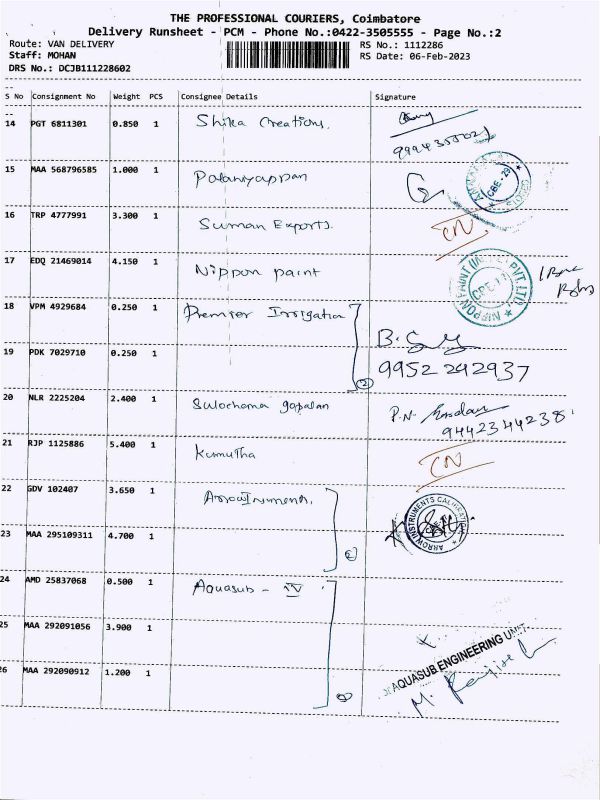 THE PROFESSIONAL COURIERS, Coimbatore
Delivery Runsheet - PCM - Phone No.:0422-3505555 - Page No.:2
Route: VAN DELIVERY RS No.: 1112286
Staff: MOHAN RS Date: 06-Feb-2023
DRS No.: DCJB111228602
S No Consignment No Weight PCS Consignee Details Signature
14 PGT 6811301 0.850 1 Shika Creations.
15 MAA 568796585 1.000 1 Palaniyappan
16 TRP 4777991 3.300 1 Suman Exports.
17 EDQ 21469014 4.150 1 Nippon paint
NIPPON PAINT (INDIA) PVT. LTD
18 VPM 4929684 0.250 1 Premier Irrigation
19 PDK 7029710 0.250 1 9952242937
20 NLR 2225204 2.400 1 Sulochama gopalan P.N.
9442344238
21 RJP 1125886 5.400 1 Kumutha
22 GDV 102407 3.650 1
ARROW INSTRUMENTS CALIBRATION
23 MAA 295109311 4.700 1
24 AMD 25837068 0.500 1 Aquasub - IV
25 MAA 292091056 3.900 1
AQUASUB ENGINEERING UNIT
26 MAA 292090912 1.200 1